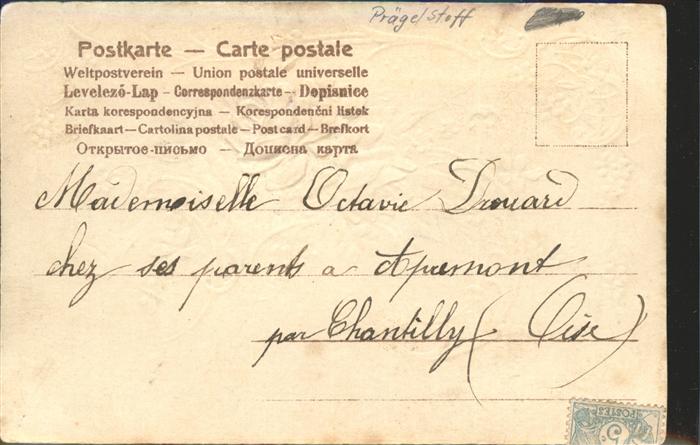 Prägelstoff
Postkarte — Carte postale
Weltpostverein — Union postale universelle
Levelező-Lap - Correspondenzkarte - Dopisnice
Karta korespondencyjna — Korespondenční listek
Briefkaart — Cartolina postale — Post card — Brefkort
Открытое-письмо — Дописна карта
Mademoiselle Octavie Drouard
chez ses parents a Apremont
par Chantilly (Oise)
POSTES
5